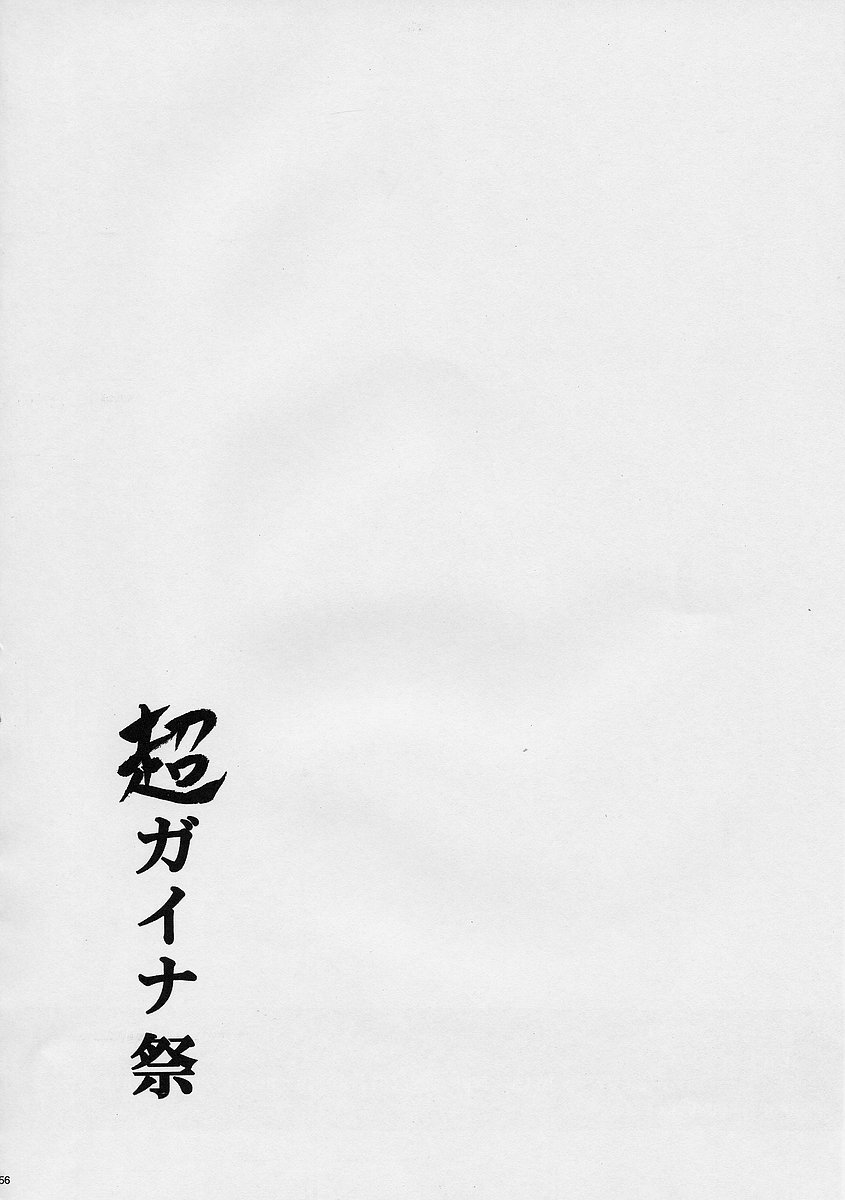 超ガイナ祭
56